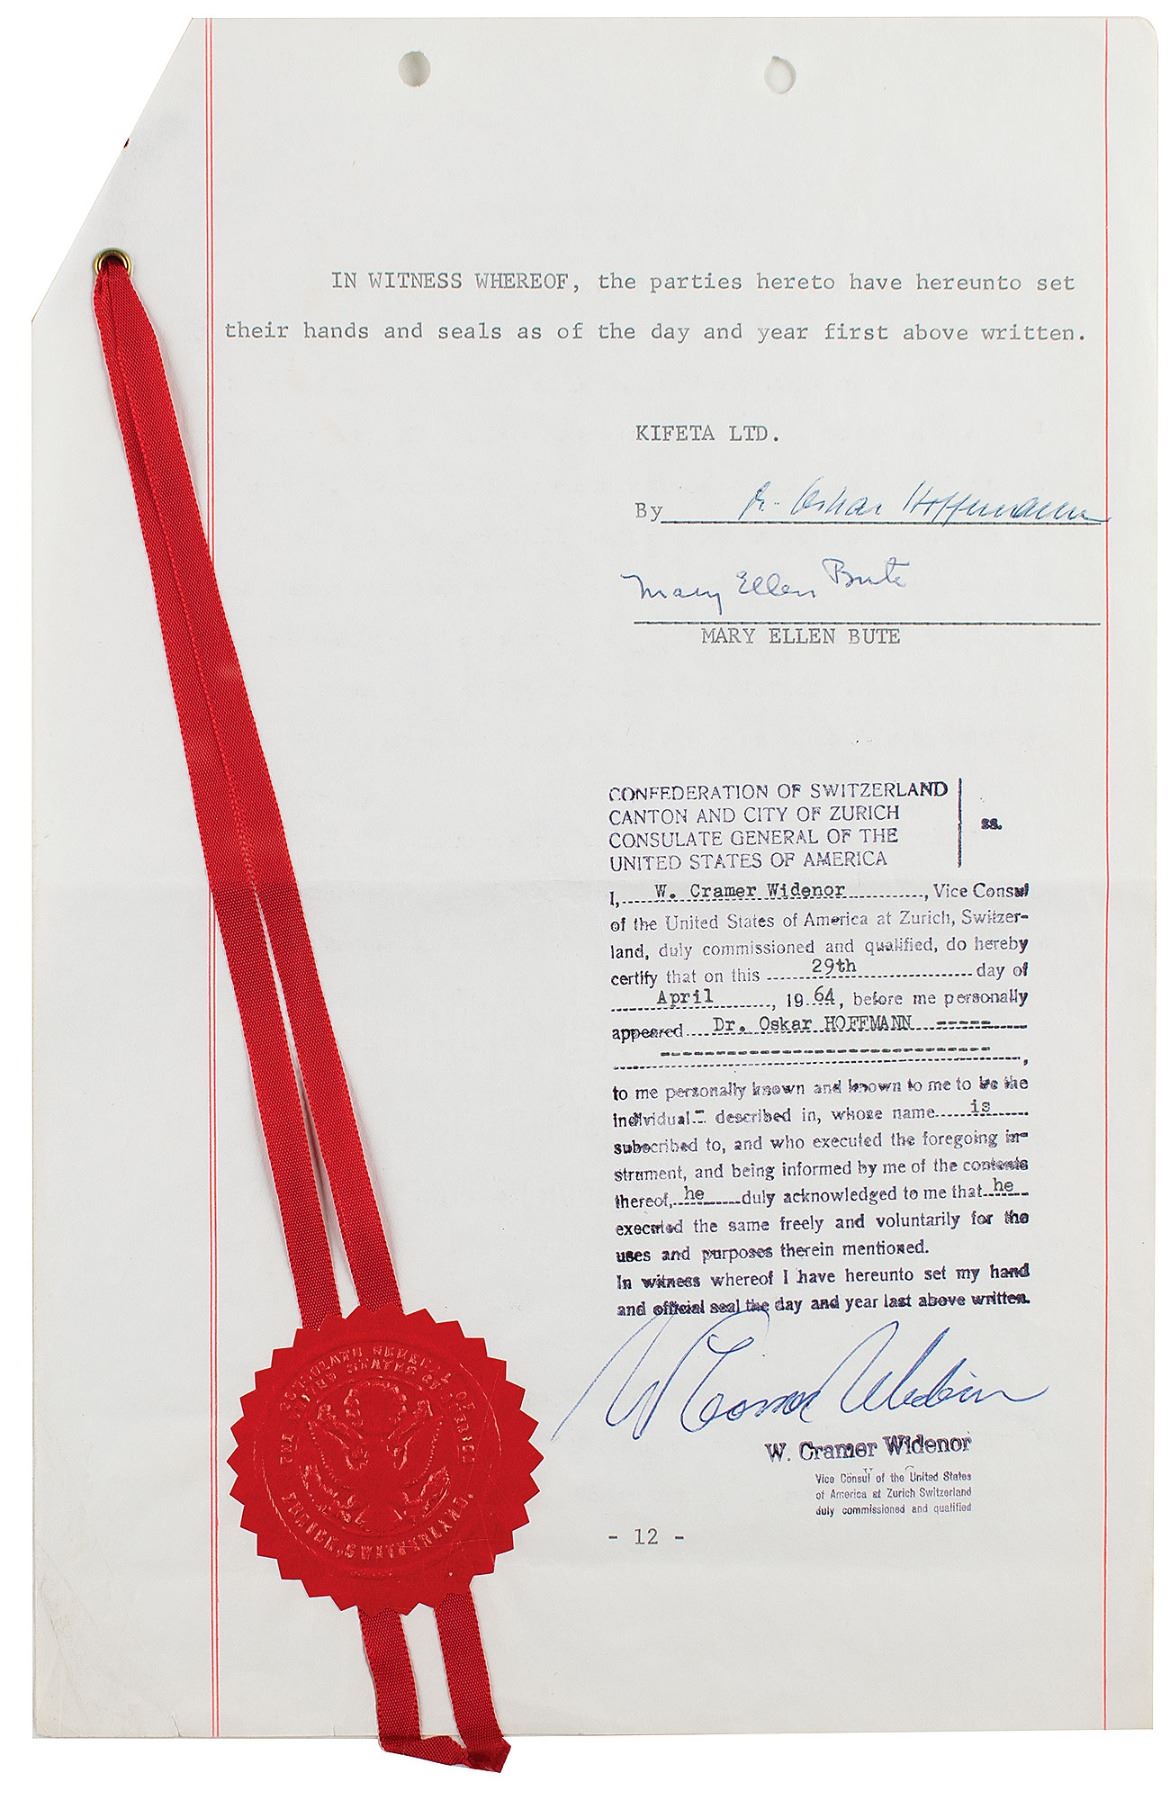 IN WITNESS WHEREOF, the parties hereto have hereunto set
their hands and seals as of the day and year first above written.
KIFETA LTD.
By Dr. Oskar Hoffmann
Mary Ellen Bute
MARY ELLEN BUTE
CONFEDERATION OF SWITZERLAND
CANTON AND CITY OF ZURICH
CONSULATE GENERAL OF THE
UNITED STATES OF AMERICA
ss.
I, W. Cramer Widenor, Vice Consul
of the United States of America at Zurich, Switzer-
land, duly commissioned and qualified, do hereby
certify that on this 29th day of
April, 1964, before me personally
appeared Dr. Oskar HOFFMANN -----
------------------------------,
to me personally known and known to me to be the
individual- described in, whose name is
subscribed to, and who executed the foregoing in-
strument, and being informed by me of the contents
thereof, he duly acknowledged to me that he
executed the same freely and voluntarily for the
uses and purposes therein mentioned.
In witness whereof I have hereunto set my hand
and official seal the day and year last above written.
W Cramer Widenor
W. Cramer Widenor
Vice Consul of the United States
of America at Zurich Switzerland
duly commissioned and qualified
- 12 -
THE CONSULATE GENERAL OF
UNITED STATES OF AMERICA
ZURICH, SWITZERLAND.